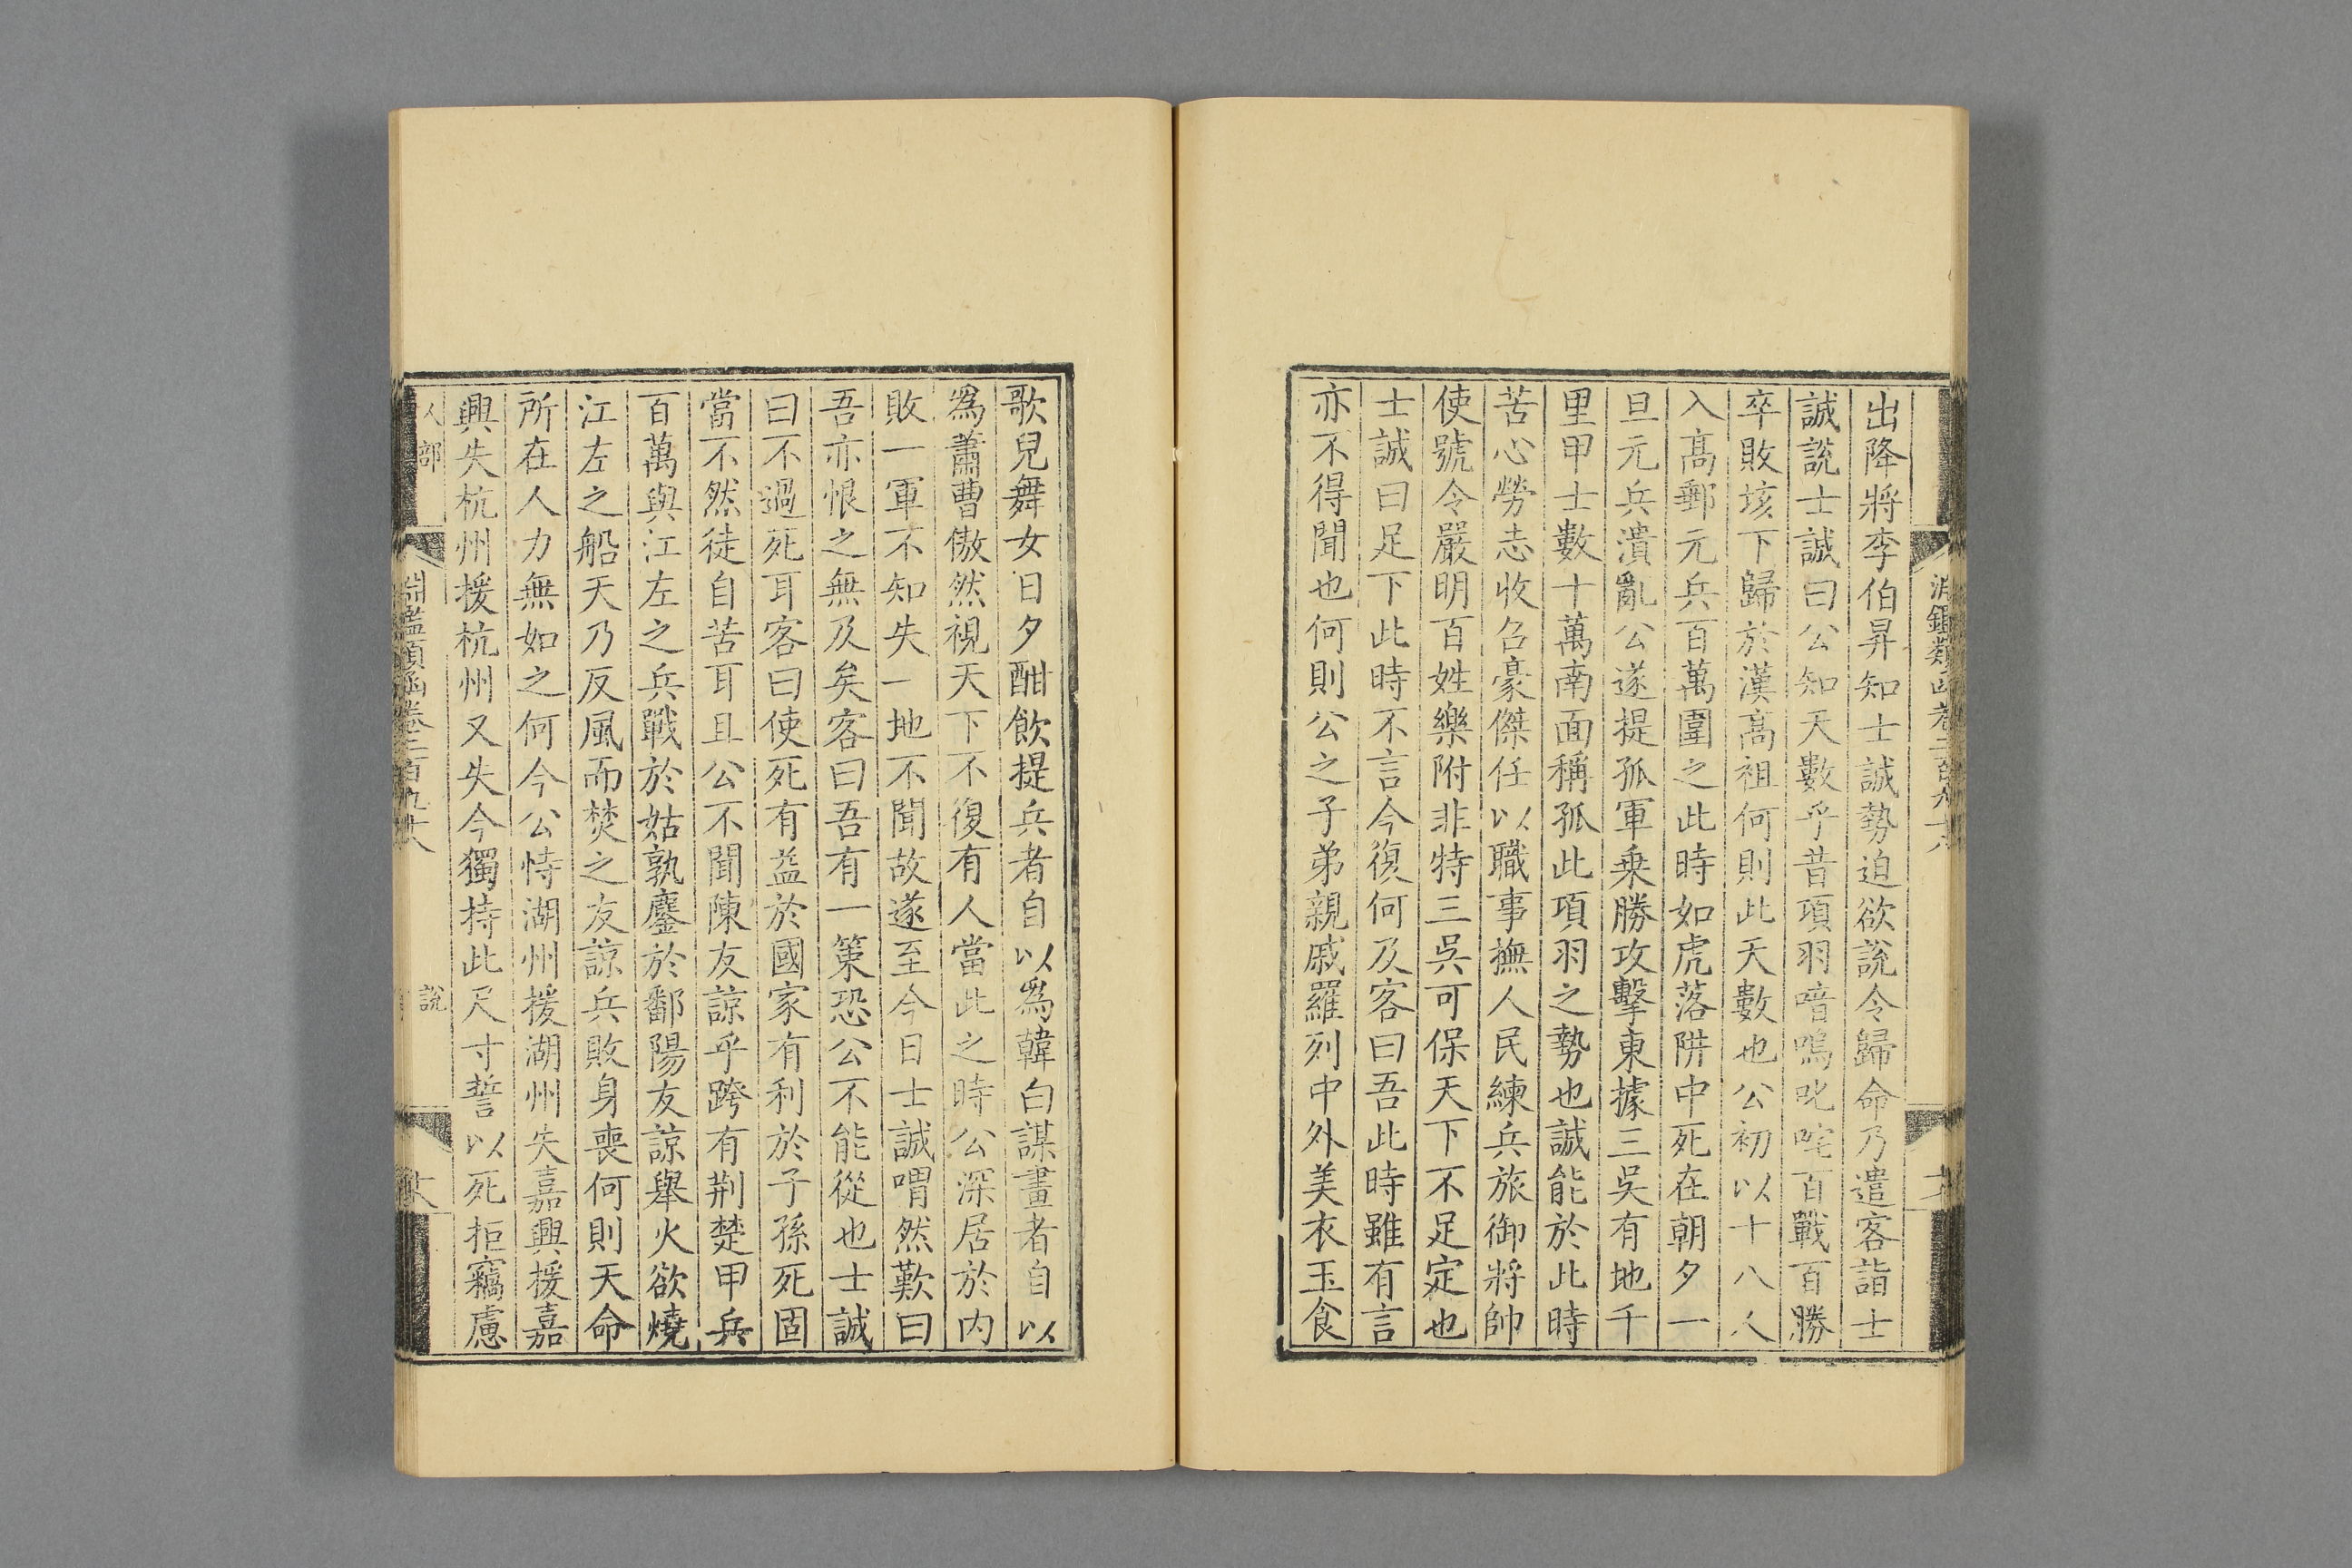 出降將李伯昇知士誠勢迫欲説令歸命乃遣客詣士
誠説士誠曰公知天數乎昔項羽喑嗚叱咤百戰百勝
卒敗垓下歸於漢高祖何則此天數也公初以十八人
入高郵元兵百萬圍之此時如虎落阱中死在朝夕一
旦元兵潰亂公遂提孤軍乗勝攻擊東據三吳有地千
里甲士數十萬南面稱孤此項羽之勢也誠能於此時
苦心勞志收召豪傑任以職事撫人民練兵旅御將帥
使號令嚴明百姓樂附非特三吳可保天下不足定也
士誠曰足下此時不言今復何及客曰吾此時雖有言
亦不得聞也何則公之子弟親戚羅列中外美衣玉食
歌兒舞女日夕酣飲提兵者自以爲韓白謀畫者自以
爲蕭曹傲然視天下不復有人當此之時公深居於内
敗一軍不知失一地不聞故遂至今日士誠喟然歎曰
吾亦恨之無及矣客曰吾有一策恐公不能從也士誠
曰不過死耳客曰使死有益於國家有利於子孫死固
當不然徒自苦耳且公不聞陳友諒乎跨有荆楚甲兵
百萬與江左之兵戰於姑孰鏖於鄱陽友諒舉火欲燒
江左之船天乃反風而焚之友諒兵敗身喪何則天命
所在人力無如之何今公恃湖州援湖州失嘉興援嘉
興失杭州援杭州又失今獨持此尺寸誓以死拒竊慮
人部
淵鑑類函卷二百九十八
説